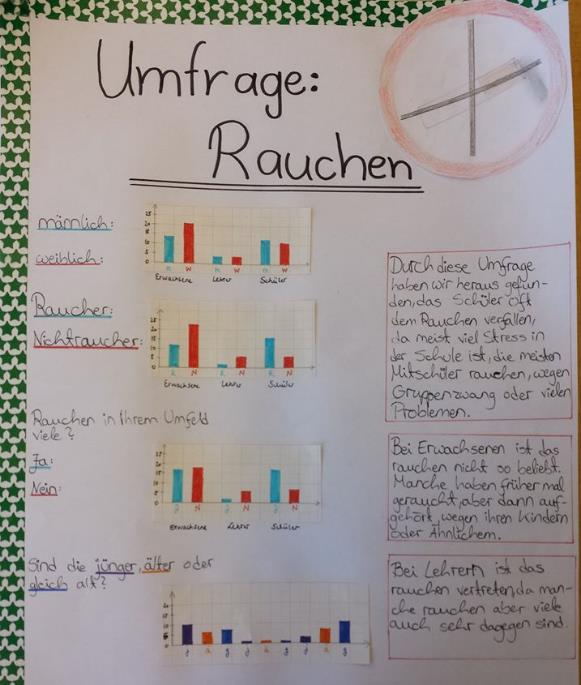 Umfrage:
Rauchen
männlich:
weiblich:
Erwachsene Lehrer Schüler
Raucher:
Nichtraucher:
R N R N R N
Erwachsene Lehrer Schüler
Rauchen in Ihrem Umfeld
viele?
Ja:
Nein:
J N J N J N
Erwachsene Lehrer Schüler
Sind die jünger, älter oder
gleich alt?
j ä g j ä g j ä g
Durch diese Umfrage
haben wir heraus gefun-
den, das Schüler oft
dem Rauchen verfallen,
da meist viel Stress in
der Schule ist, die meisten
Mitschüler rauchen, wegen
Gruppenzwang oder vielen
Problemen.
Bei Erwachsenen ist das
rauchen nicht so beliebt.
Manche haben früher mal
geraucht, aber dann auf-
gehört, wegen ihren Kindern
oder Ähnlichem.
Bei Lehrern ist das
rauchen vertreten, da man-
che rauchen aber viele
auch sehr dagegen sind.